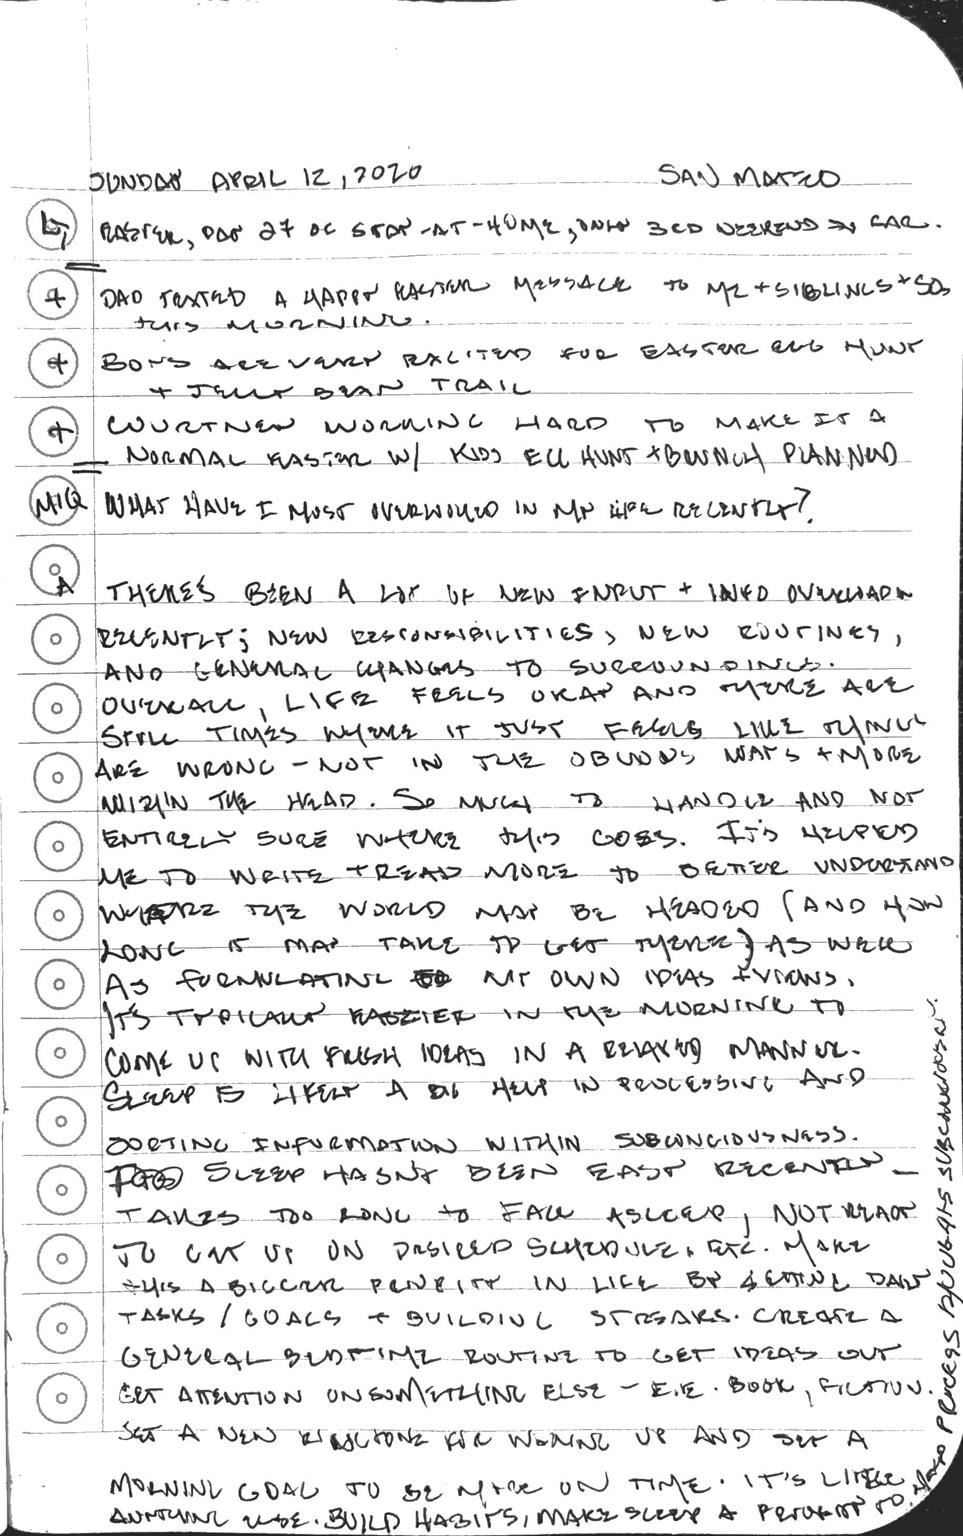 SUNDAY APRIL 12, 2020 SAN MATEO
EASTER, DAY 27 OF STAY-AT-HOME, ONLY 3RD WEEKEND SO FAR.
+ DAD TEXTED A HAPPY EASTER MESSAGE TO ME + SIBLINGS + SOs
THIS MORNING.
+ BOYS ARE VERY EXCITED FOR EASTER EGG HUNT
+ JELLY BEAN TRAIL
+ COURTNEY WORKING HARD TO MAKE IT A
NORMAL EASTER W/ KIDS EGG HUNT + BRUNCH PLANNED
MIQ WHAT HAVE I MOST OVERWORKED IN MY LIFE RECENTLY?
A THERE'S BEEN A LOT OF NEW INPUT + INFO OVERLOAD
RECENTLY; NEW RESPONSIBILITIES, NEW ROUTINES,
AND GENERAL CHANGES TO SURROUNDINGS.
OVERALL, LIFE FEELS OKAY AND THERE ARE
STILL TIMES WHERE IT JUST FEELS LIKE THINGS
ARE WRONG - NOT IN THE OBVIOUS WAYS + MORE
WITHIN THE HEAD. SO MUCH TO HANDLE AND NOT
ENTIRELY SURE WHERE THIS GOES. IT'S HELPED
ME TO WRITE + READ MORE TO BETTER UNDERSTAND
WHERE THE WORLD MAY BE HEADED (AND HOW
LONG IT MAY TAKE TO GET THERE) AS WELL
AS FORMULATING MY OWN IDEAS + VIEWS.
IT'S TYPICALLY EASIER IN THE MORNING TO
COME UP WITH FRESH IDEAS IN A RELAXED MANNER.
SLEEP IS LIKELY A BIG HELP IN PROCESSING AND
SORTING INFORMATION WITHIN SUBCONCIOUSNESS.
SLEEP HASN'T BEEN EASY RECENTLY -
TAKES TOO LONG TO FALL ASLEEP, NOT READY
TO GET UP ON DESIRED SCHEDULE, ETC. MAKE
THIS A BIGGER PRIORITY IN LIFE BY SETTING DAILY
TASKS / GOALS + BUILDING STREAKS. CREATE A
GENERAL BEDTIME ROUTINE TO GET IDEAS OUT
GET ATTENTION ON SOMETHING ELSE - I.E. BOOK, FICTION.
SET A NEW RINGTONE FOR WAKING UP AND SET A
MORNING GOAL TO BE MORE ON TIME. IT'S LIKE
ANYTHING ELSE. BUILD HABITS, MAKE SLEEP A PRIORITY TO
PROCESS THOUGHTS SUBCONSCIOUSLY.